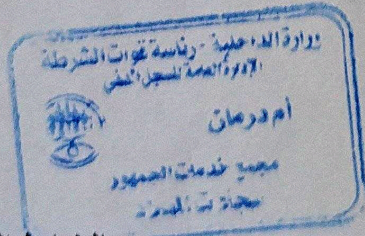 وزارة الداخلية - رئاسة قوات الشرطة
الإدارة العامة للسجل المدني
أم درمان
مجمع خدمات الجمهور